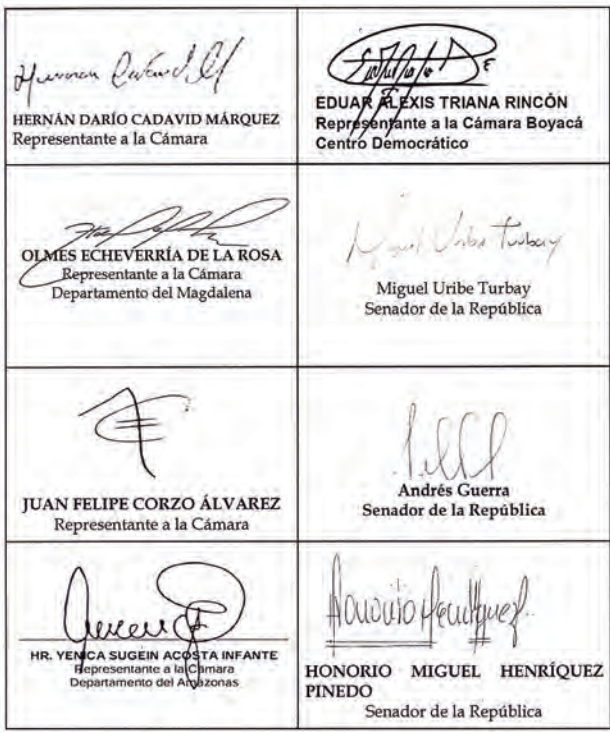 HERNÁN DARÍO CADAVID MÁRQUEZ
Representante a la Cámara
EDUAR ALEXIS TRIANA RINCÓN
Representante a la Cámara Boyacá
Centro Democrático
OLMES ECHEVERRÍA DE LA ROSA
Representante a la Cámara
Departamento del Magdalena
Miguel Uribe Turbay
Miguel Uribe Turbay
Senador de la República
JUAN FELIPE CORZO ÁLVAREZ
Representante a la Cámara
Andrés Guerra
Senador de la República
HR. YENICA SUGEIN ACOSTA INFANTE
Representante a la Cámara
Departamento del Amazonas
Honorio Henríquez
HONORIO MIGUEL HENRÍQUEZ
PINEDO
Senador de la República